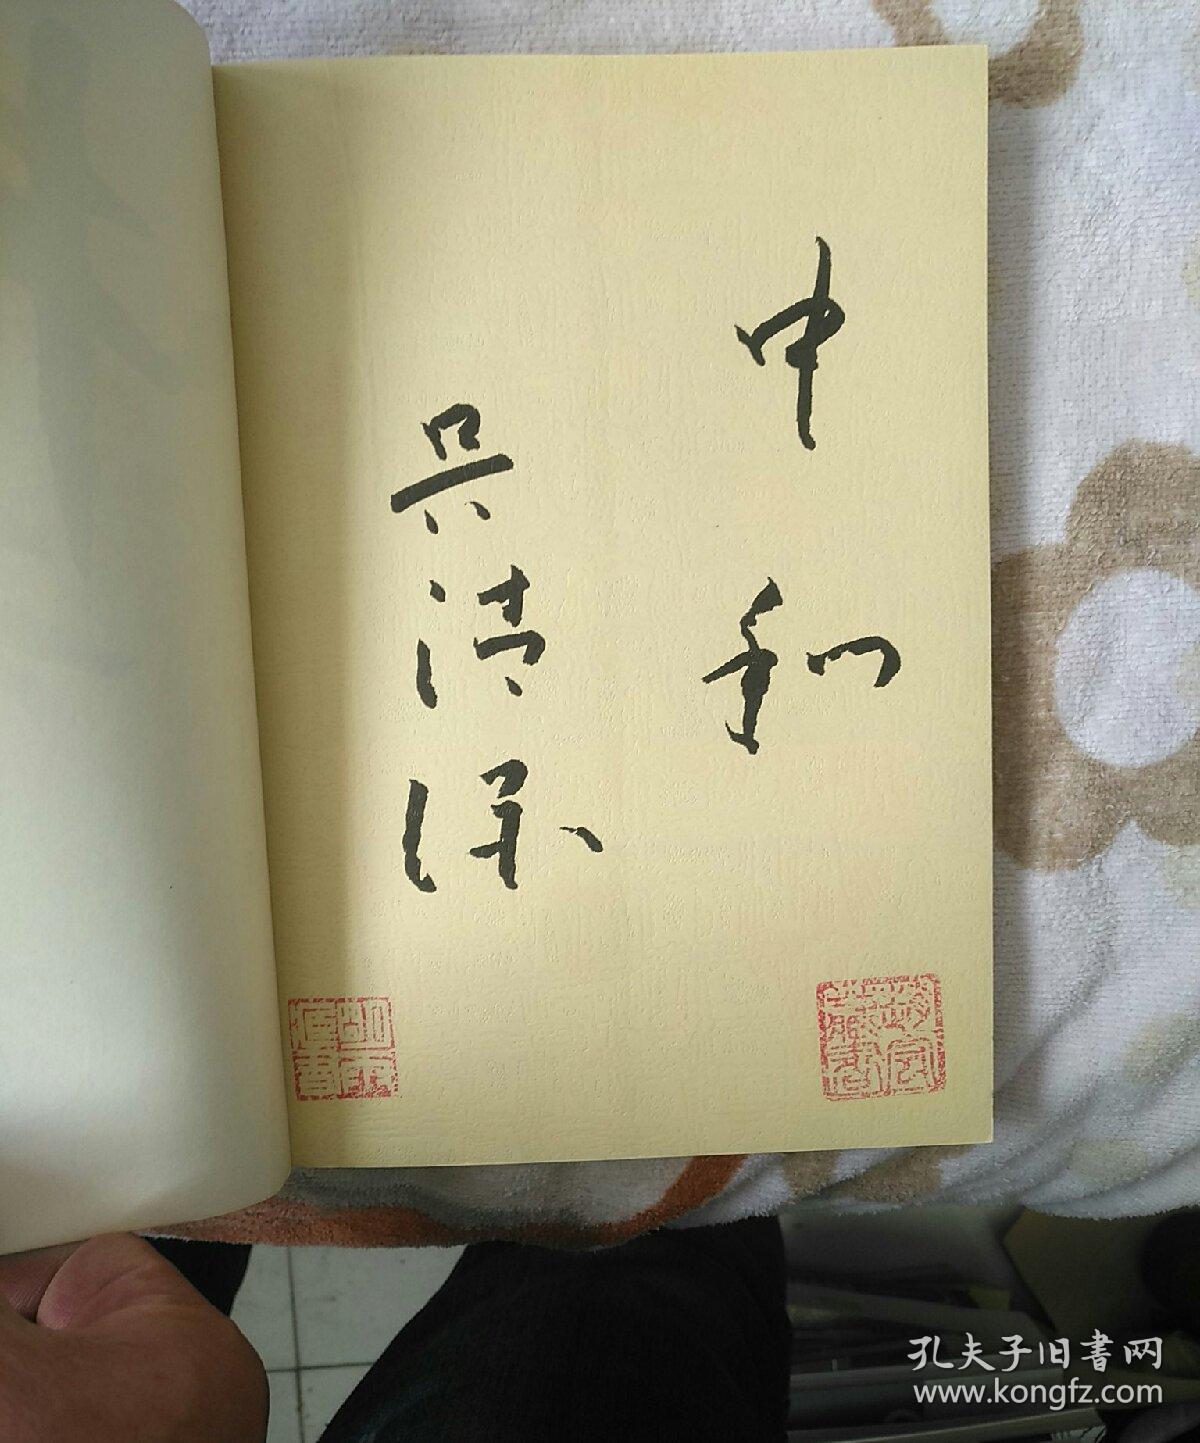 中和
吴清源
孔夫子旧書网
www.kongfz.com